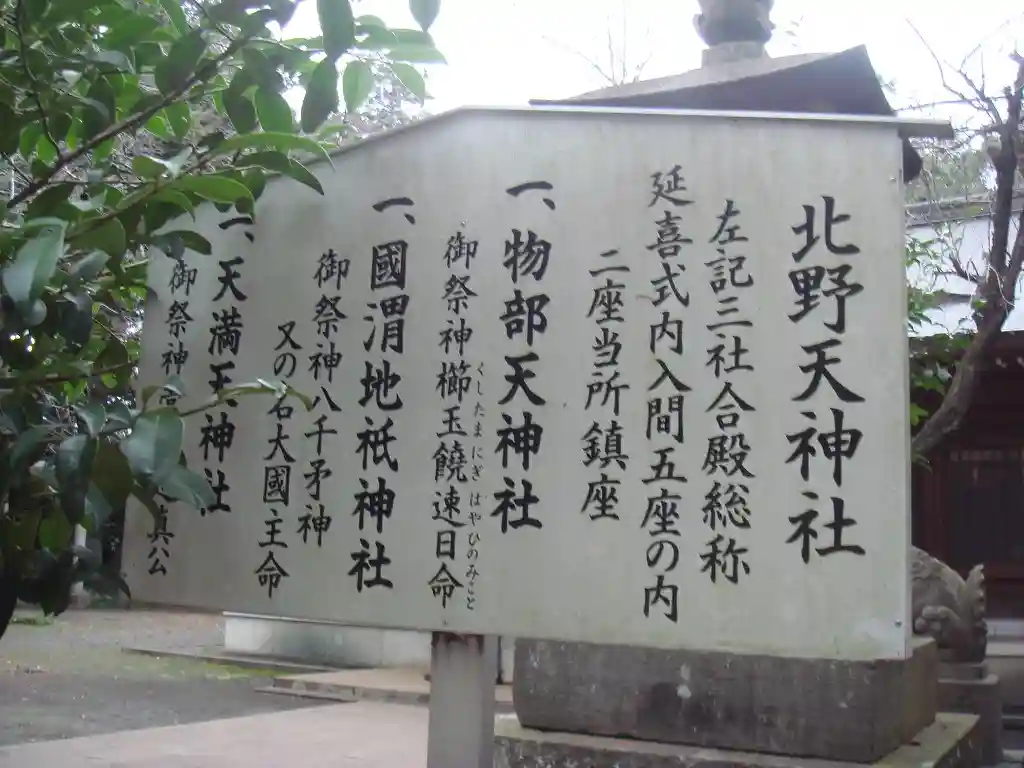 北野天神社
左記三社合殿総称
延喜式内入間五座の内
二座当所鎮座
一、物部天神社
御祭神櫛玉饒速日命
くしたまにぎはやひのみこと
一、國渭地祇神社
御祭神八千矛神
又の名大國主命
一、天満天神社
御祭神 真公